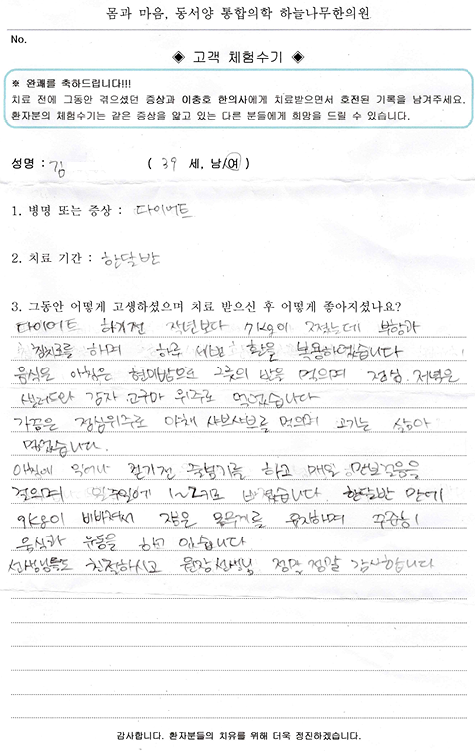 몸과 마음, 동서양 통합의학 하늘나무한의원
No.
◈ 고객 체험수기 ◈
※ 완쾌를 축하드립니다!!!
치료 전에 그동안 겪으셨던 증상과 이충호 한의사에게 치료받으면서 호전된 기록을 남겨주세요.
환자분의 체험수기는 같은 증상을 앓고 있는 다른 분들에게 희망을 드릴 수 있습니다.
성명 : 김 ( 39 세, 남/여 )
1. 병명 또는 증상 : 다이어트
2. 치료 기간 : 한달반
3. 그동안 어떻게 고생하셨으며 치료 받으신 후 어떻게 좋아지셨나요?
다이어트 하기전 작년보다 7kg이 쪘는데 부항과
침치료를 하며 하루 세번 환을 복용하였습니다
음식은 아침은 현미밥으로 그릇의 반을 먹으며 점심. 저녁은
샐러드와 감자 고구마 위주로 먹었습니다
가끔은 점심위주로 야채 샤브샤브를 먹으며 고기는 삶아
먹었습니다.
아침에 일어나 걷기전 줄넘기를 하고 매일 만보걸음을
걸으며 일주일에 1~2키로 빠졌습니다. 한달반 만에
9kg이 빠져서 지금은 몸무게를 유지하며 꾸준히
음식과 운동을 하고 있습니다
선생님들도 친절하시고 원장선생님 정말 정말 감사합니다
감사합니다. 환자분들의 치유를 위해 더욱 정진하겠습니다.